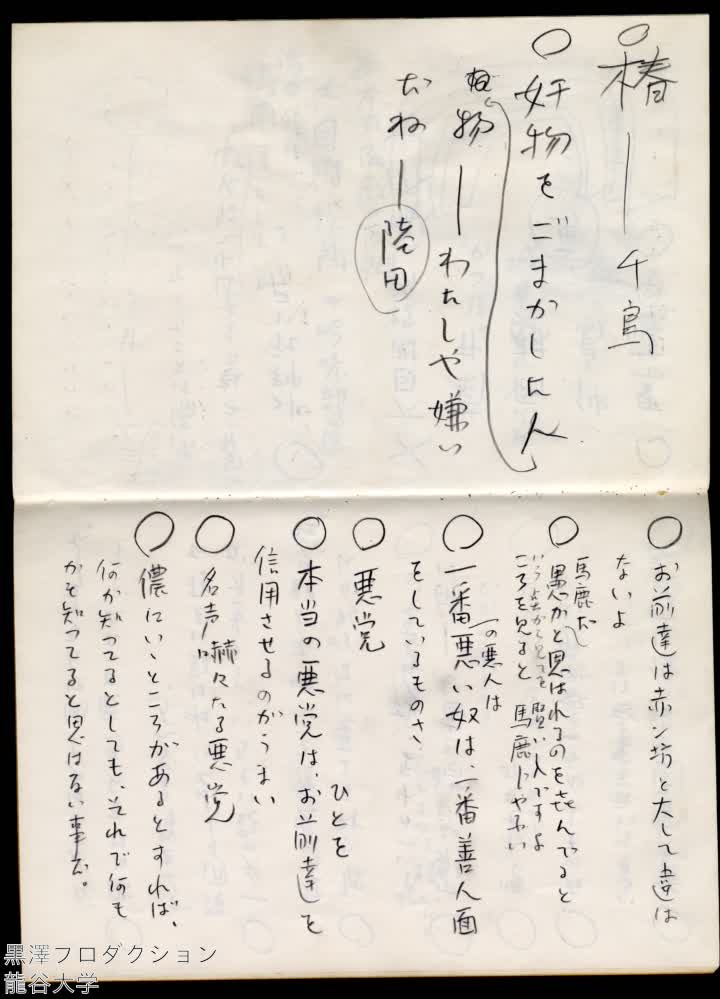 ○椿―千鳥
○奸物をごまかした人
奸物―わたしや嫌い
おね―陸田
○お前達は赤ン坊と大して違は
ないよ
馬鹿だ
○愚かと思はれるのを喜んでると
ころを見ると馬鹿じゃない
いう点から見ても賢い人ですよ
○一番悪い奴は、一番善人面
一の悪人は
をしているものさ
○悪党
○本当の悪党は、お前達を
ひとを
信用させるのがうまい
○名声嚇々たる悪党
○儂にいいところがあるとすれば、
何か知ってるとしても、それで何も
かも知ってると思はない事だ。
黒澤プロダクション
龍谷大学